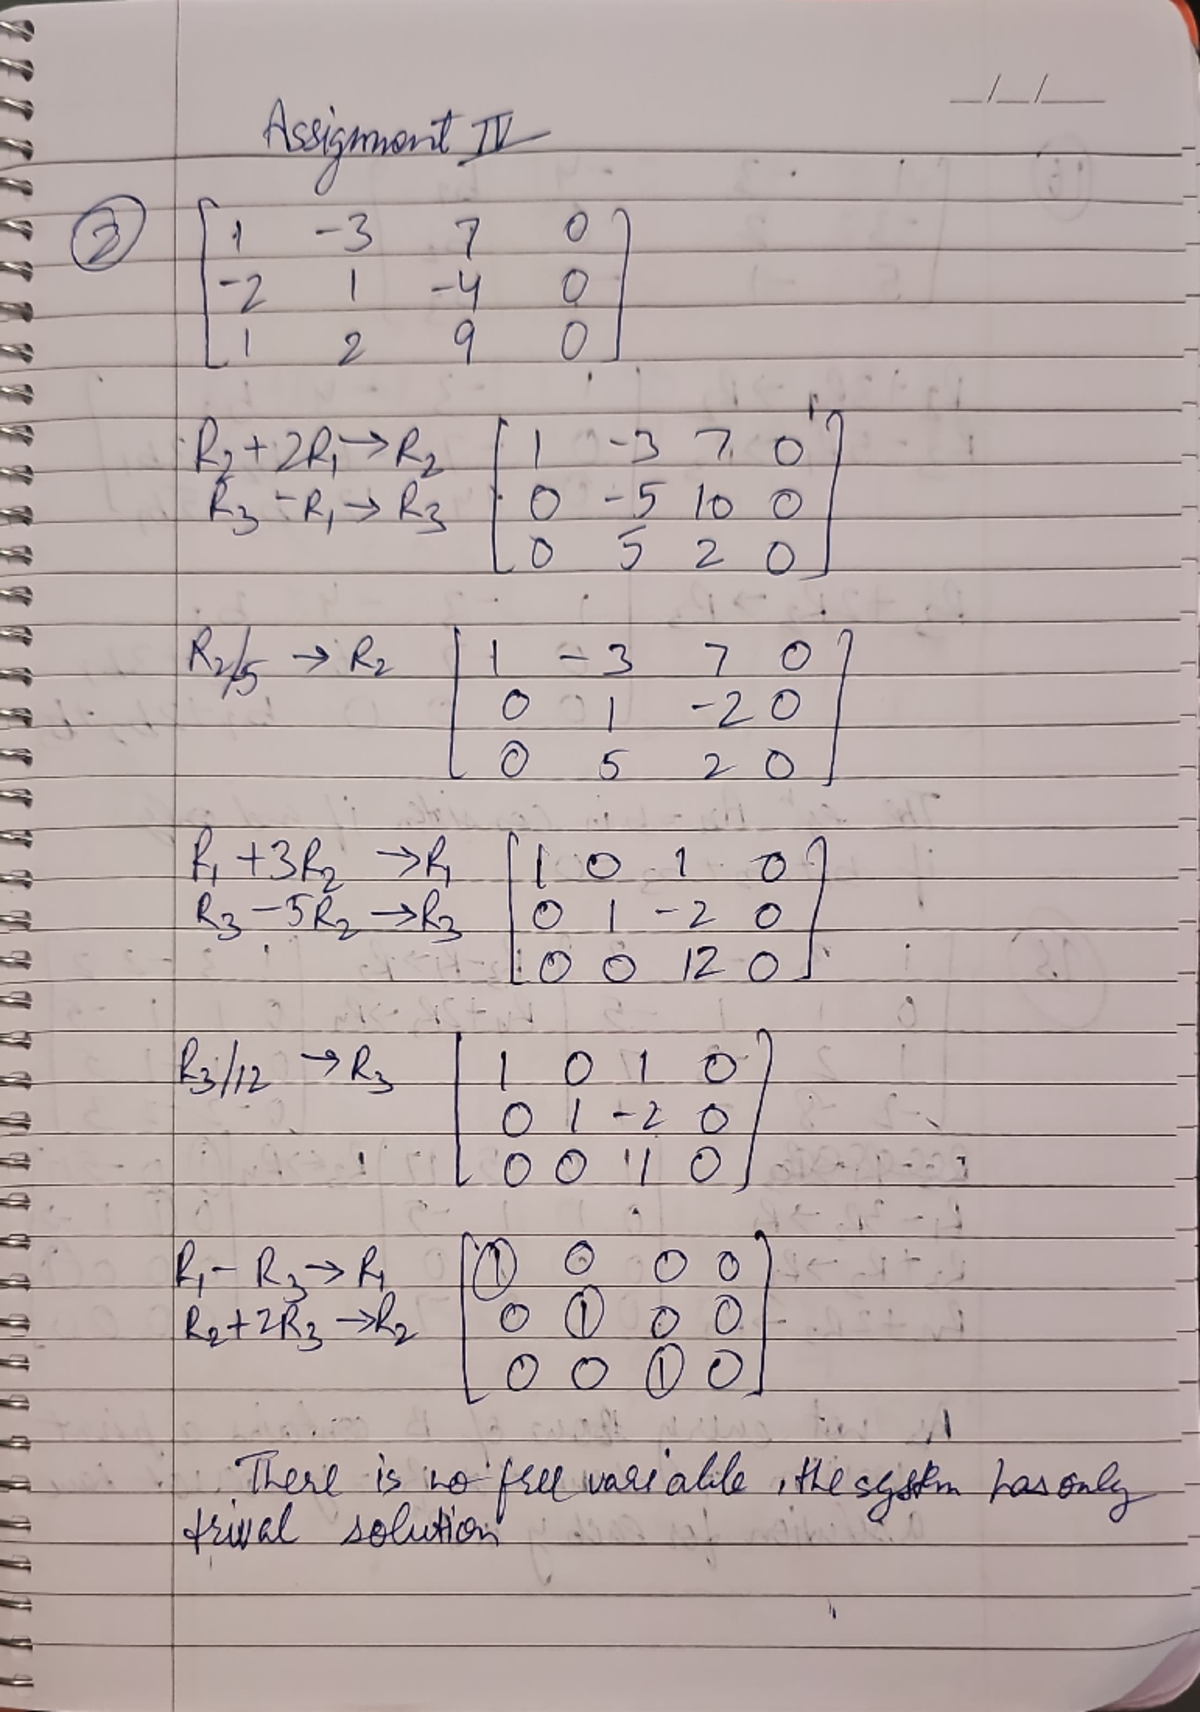 __/__/__
Assignment IV
2
1 -3 7 0
-2 1 -4 0
1 2 9 0
R2 + 2R1 → R2
R3 - R1 → R3
1 -3 7 0
0 -5 10 0
0 5 2 0
R2/5 → R2
1 -3 7 0
0 1 -2 0
0 5 2 0
R1 + 3R2 → R1
R3 - 5R2 → R3
1 0 1 0
0 1 -2 0
0 0 12 0
R3/12 → R3
1 0 1 0
0 1 -2 0
0 0 1 0
R1 - R3 → R1
R2 + 2R3 → R2
1 0 0 0
0 1 0 0
0 0 1 0
There is no free variable, the system has only
trival solution